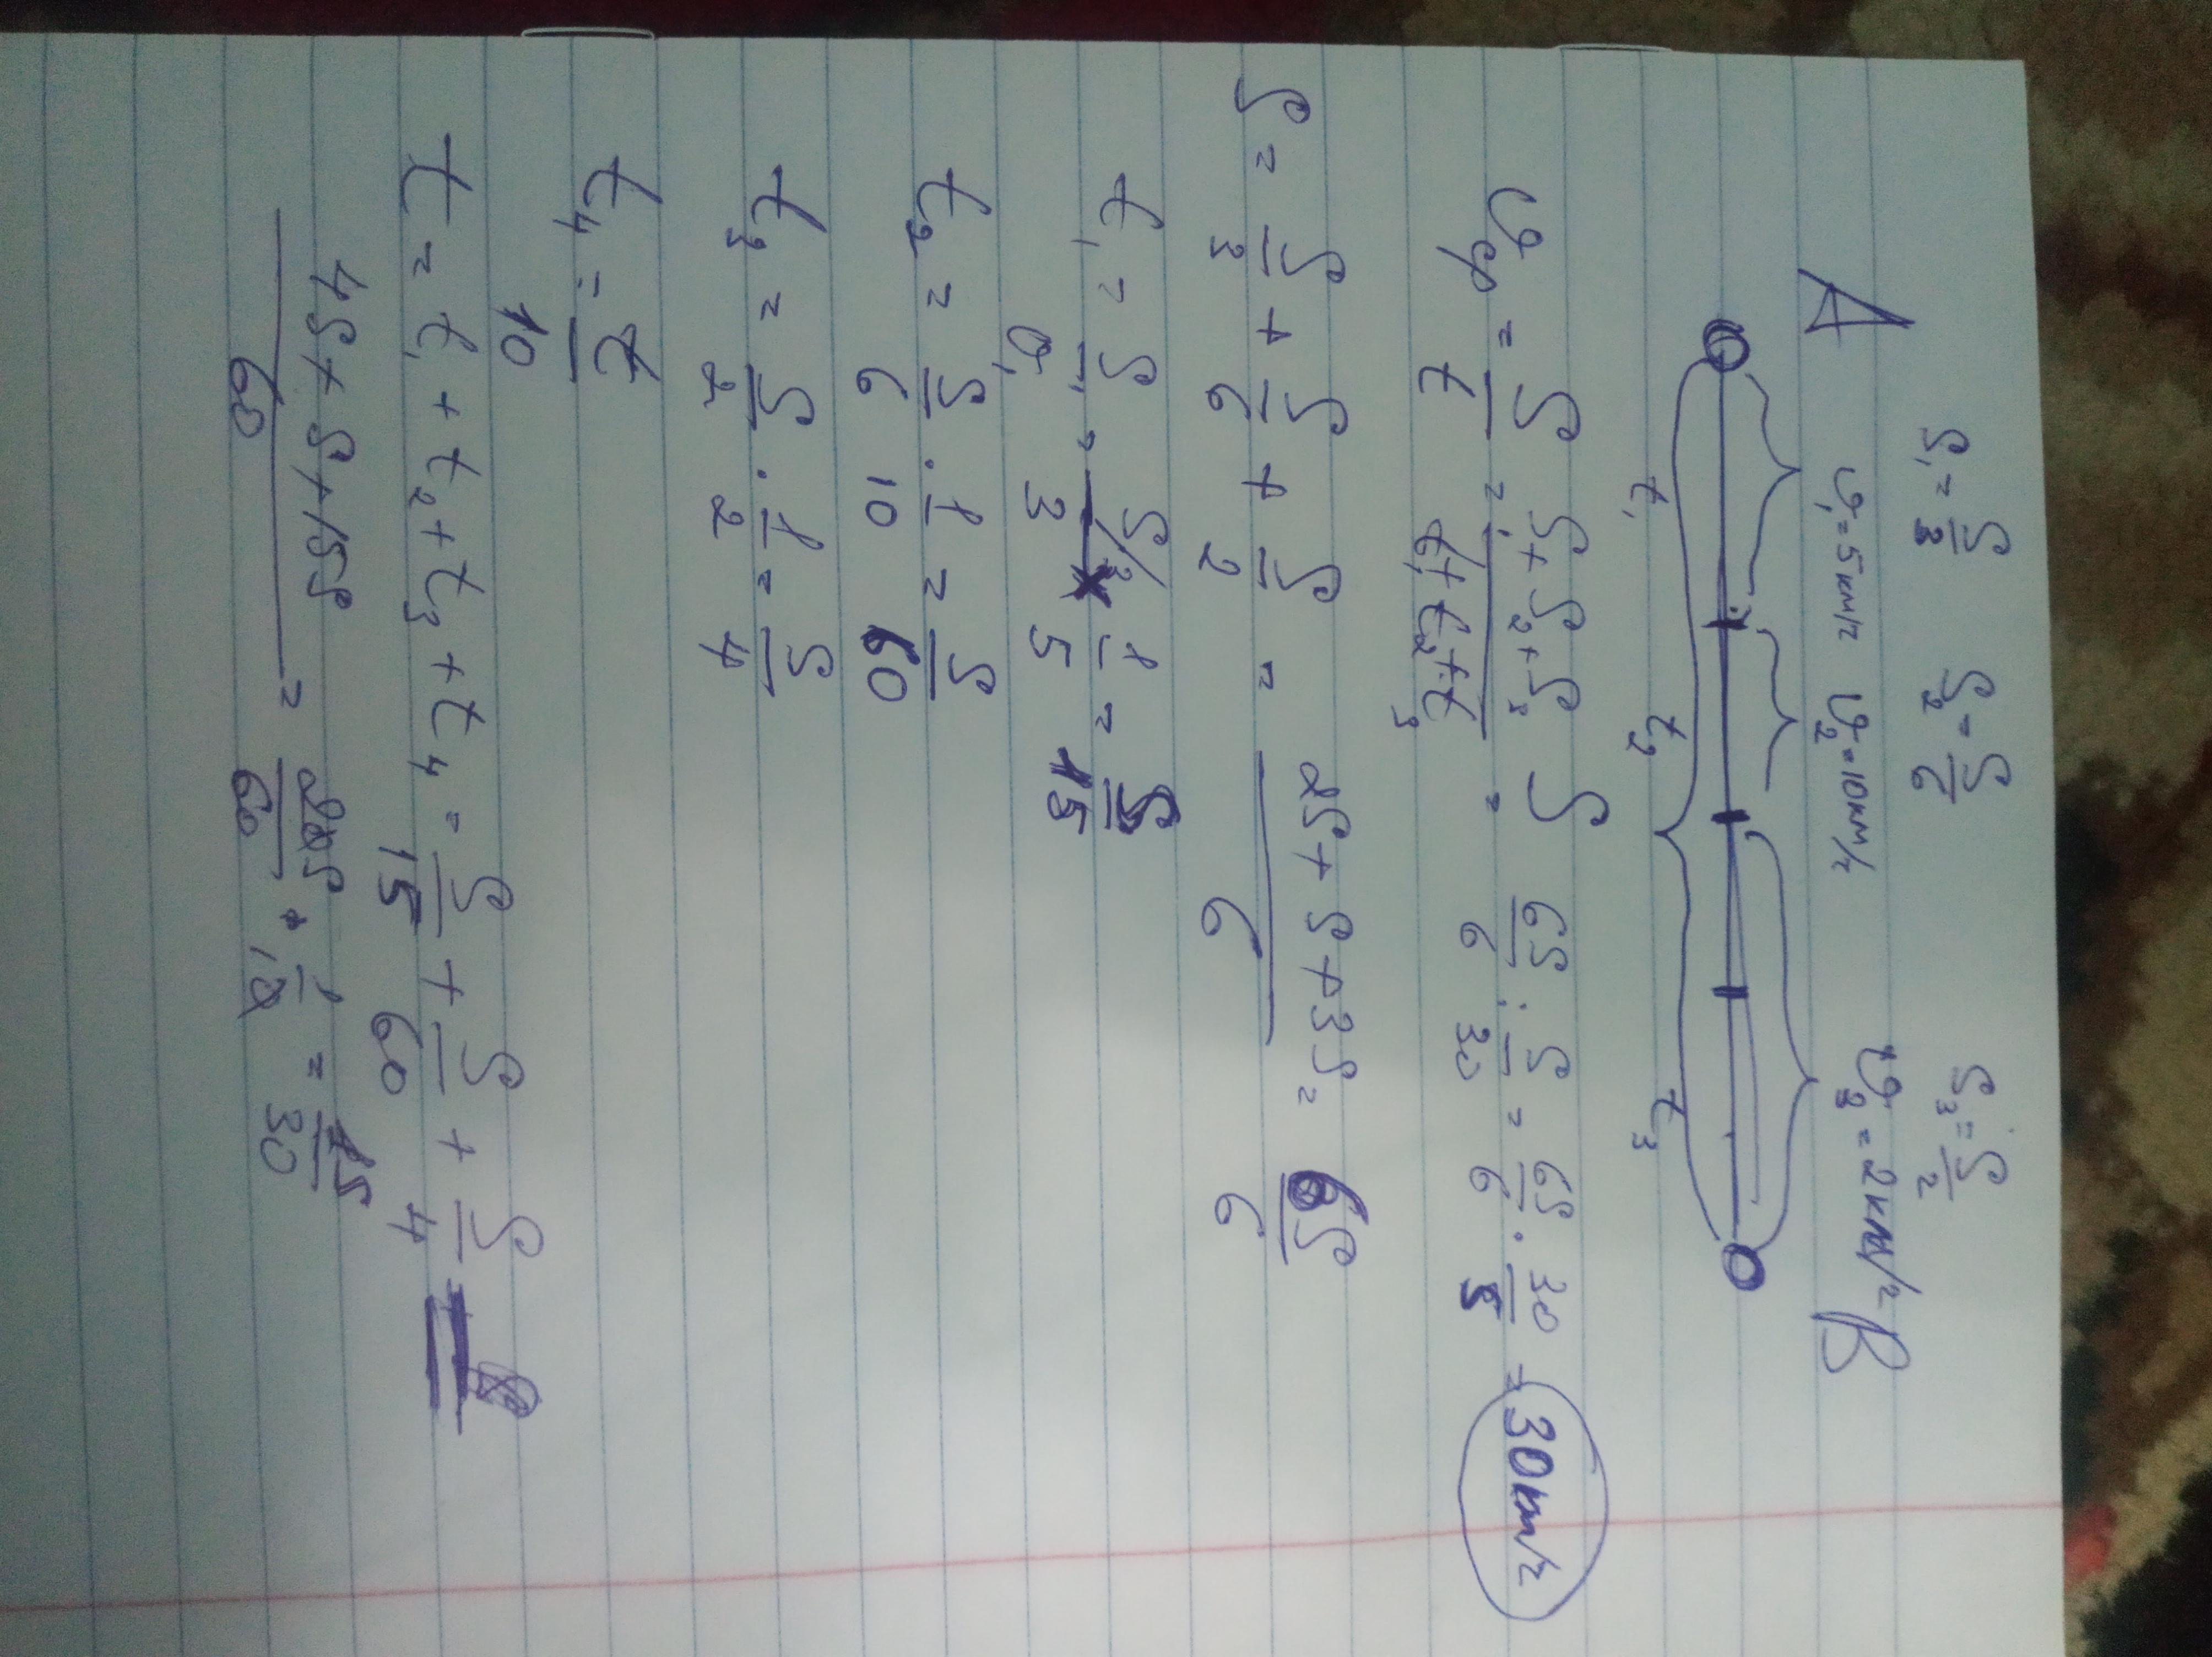 S₁ = S/3 S₂ = S/6 S₃ = S/2
A v₁ = 5 км/ч v₂ = 10 км/ч v₃ = 2 км/ч B
t₁ t₂ t₃
vср = S/t = (S₁ + S₂ + S₃)/(t₁ + t₂ + t₃) = S 6S/6 : S/30 = 6S/6 · 30/S = 30 км/ч
S = S/3 + S/6 + S/2 = (2S + S + 3S)/6 = 6S/6
t₁ = S₁/v₁ = S/3 · 1/5 = S/15
t₂ = S/6 · 1/10 = S/60
t₃ = S/2 · 1/2 = S/4
t₄ = t/10
t = t₁ + t₂ + t₃ + t₄ = S/15 + S/60 + S/4 =
(4S + S + 15S)/60 = 20S/60 · 1/10 = 1S/30